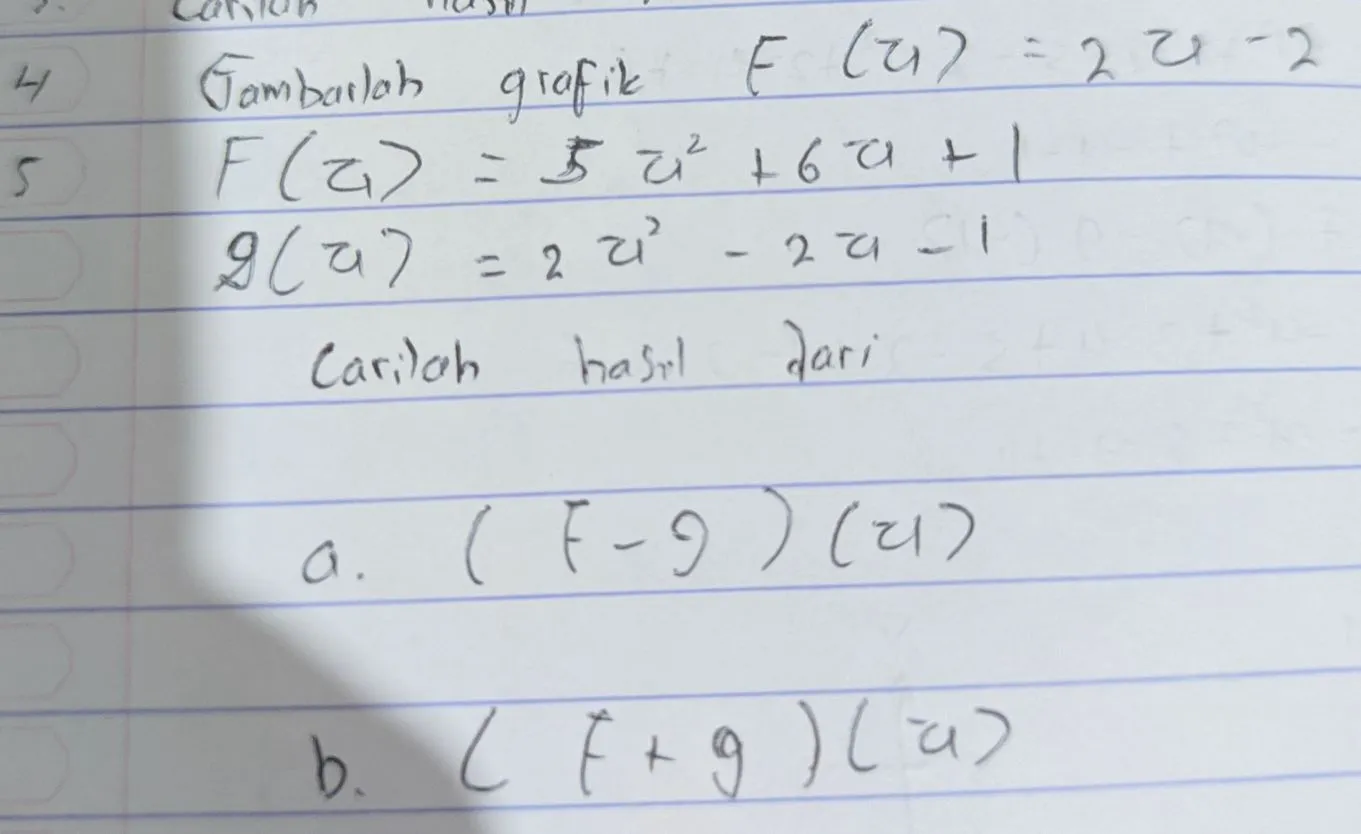 4 Gambarlah grafik F (x) = 2 x - 2
5 F(x) = 5 x² + 6 x + 1
g(x) = 2 x² - 2 x - 1
Carilah hasil dari
a. ( F - g ) (x)
b. ( F + g ) (x)